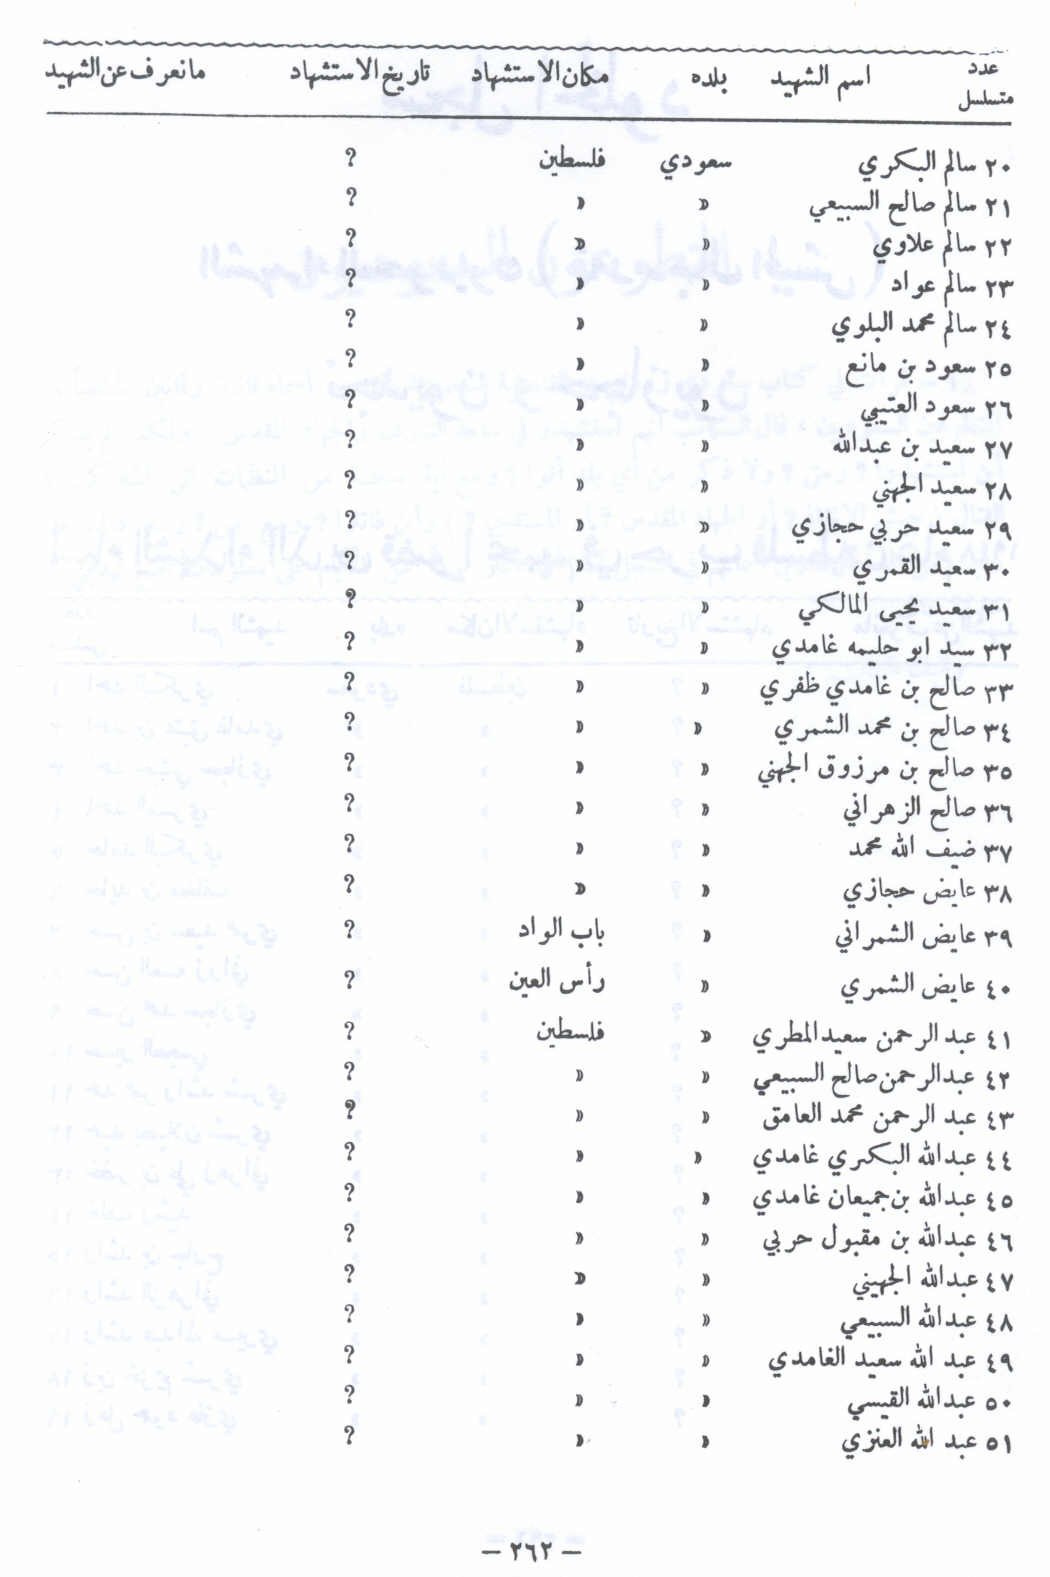 عدد متسلسل اسم الشهيد بلده مكان الاستشهاد تاريخ الاستشهاد ما نعرف عن الشهيد
٢٠ سالم البكري سعودي فلسطين ?
٢١ سالم صالح السبيعي » » ?
٢٢ سالم علاوي » » ?
٢٣ سالم عواد » » ?
٢٤ سالم محمد البلوي » » ?
٢٥ سعود بن مانع » » ?
٢٦ سعود العتيبي » » ?
٢٧ سعيد بن عبدالله » » ?
٢٨ سعيد الجهني » » ?
٢٩ سعيد حربي حجازي » » ?
٣٠ سعيد القمري » » ?
٣١ سعيد يحيى المالكي » » ?
٣٢ سيد ابو حليمه غامدي » » ?
٣٣ صالح بن غامدي ظفري » » ?
٣٤ صالح بن محمد الشمري » » ?
٣٥ صالح بن مرزوق الجهني » » ?
٣٦ صالح الزهراني » » ?
٣٧ ضيف الله محمد » » ?
٣٨ عايض حجازي » » ?
٣٩ عايض الشمراني » باب الواد ?
٤٠ عايض الشمري » رأس العين ?
٤١ عبد الرحمن سعيد المطري » فلسطين ?
٤٢ عبدالرحمن صالح السبيعي » » ?
٤٣ عبد الرحمن محمد العامق » » ?
٤٤ عبدالله البكري غامدي » » ?
٤٥ عبدالله بن جميعان غامدي » » ?
٤٦ عبدالله بن مقبول حربي » » ?
٤٧ عبدالله الجهيني » » ?
٤٨ عبدالله السبيعي » » ?
٤٩ عبد الله سعيد الغامدي » » ?
٥٠ عبدالله القيسي » » ?
٥١ عبد الله العنزي » » ?
— ٢٦٢ —